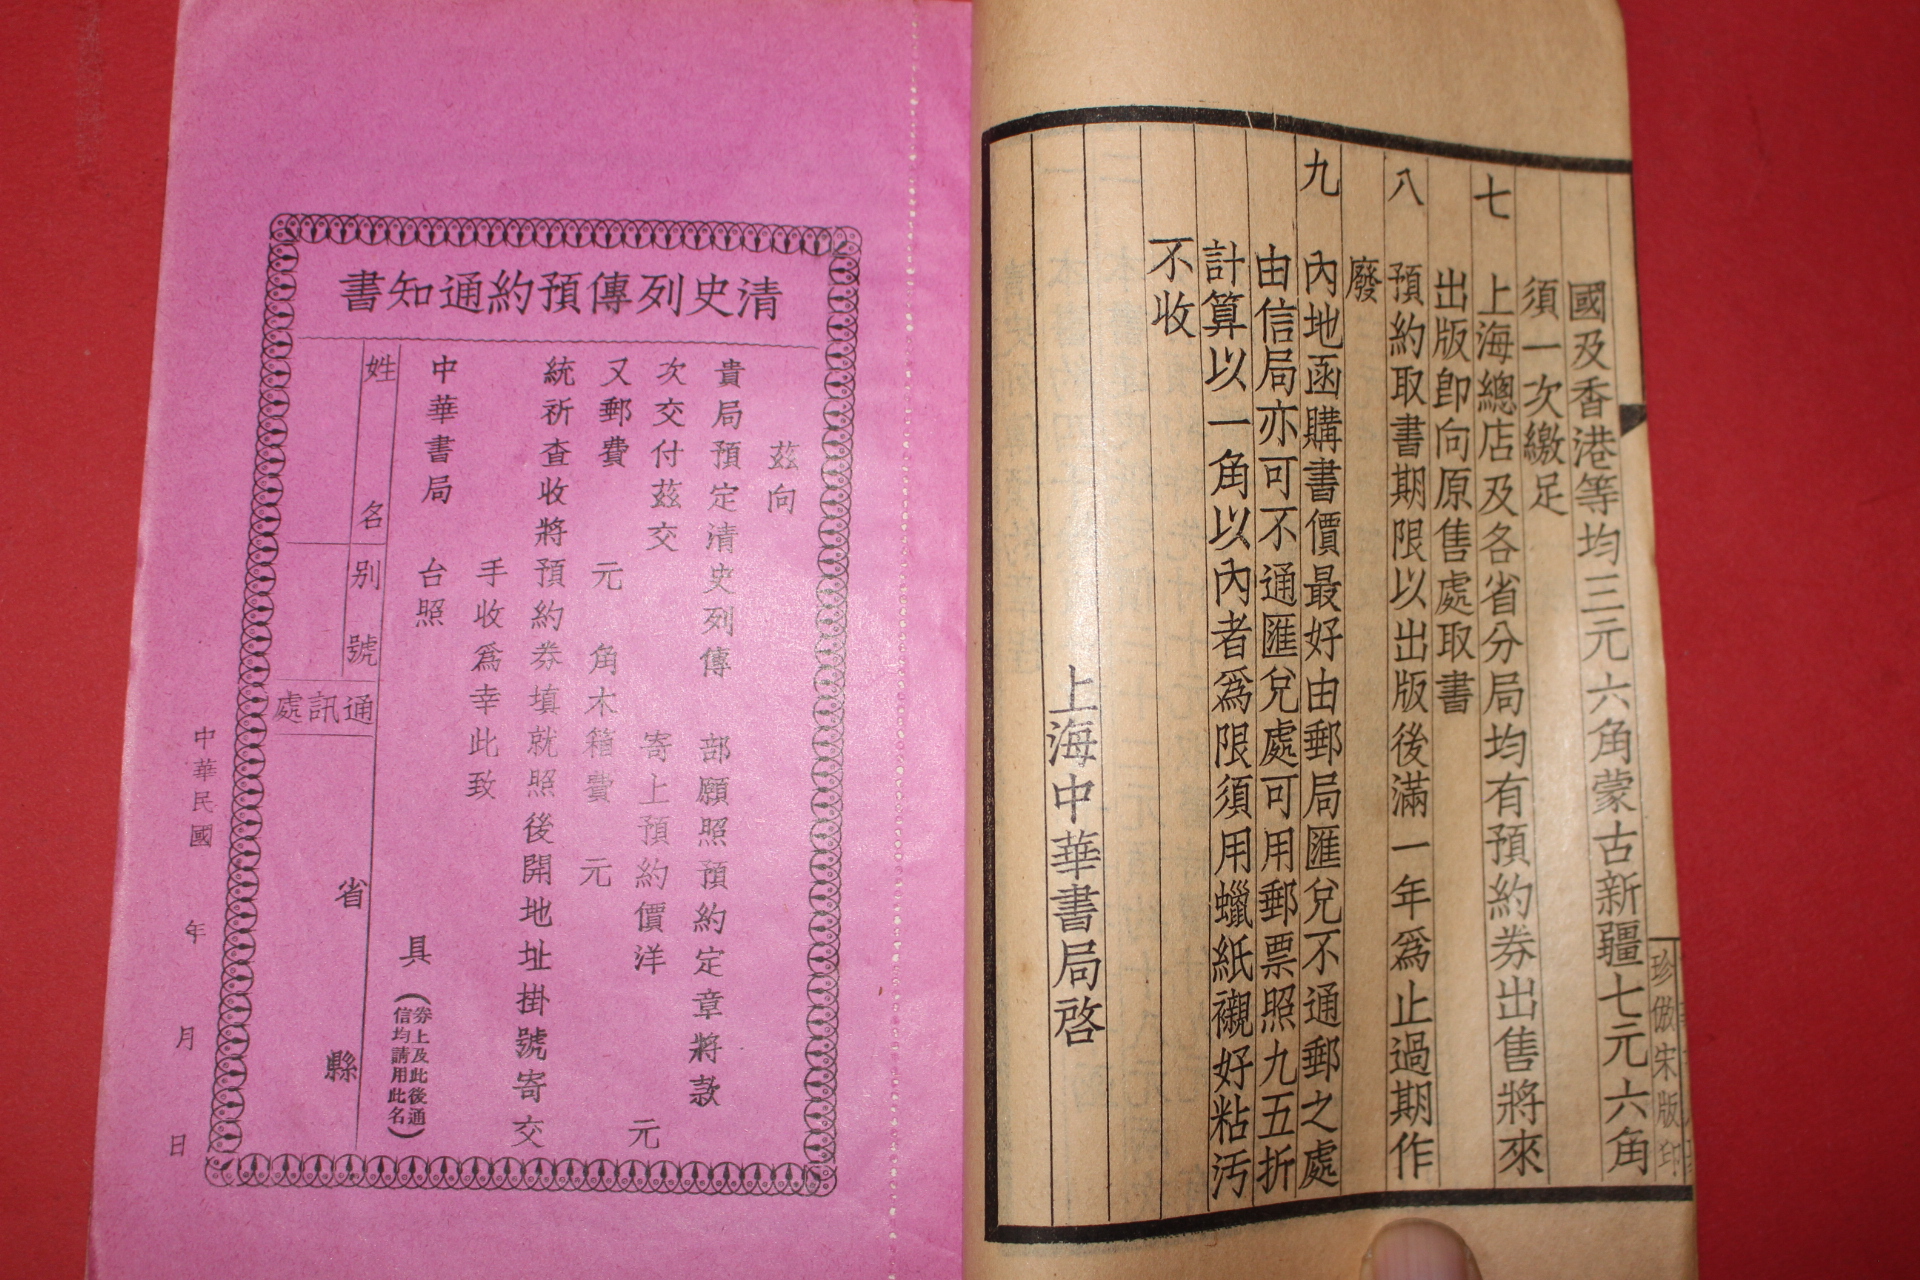 國及香港等均三元六角蒙古新疆七元六角
須一次繳足
七 上海總店及各省分局均有預約券出售將來
出版即向原售處取書
八 預約取書期限以出版後滿一年爲止過期作
廢
九 內地函購書價最好由郵局匯兌不通郵之處
由信局亦可不通匯兌處可用郵票照九五折
計算以一角以內者爲限須用蠟紙襯好粘汚
不收
上海中華書局啓
珍倣宋版印
清史列傳預約通知書
茲向
貴局預定清史列傳 部願照預約定章將款
次交付茲交 寄上預約價洋 元
又郵費 元 角木箱費 元
統祈查收將預約券填就照後開地址掛號寄交
手收爲幸此致
中華書局 台照
具(券上及此後通
信均請用此名)
姓 名
别 號
通訊處
省 縣
中華民國 年 月 日